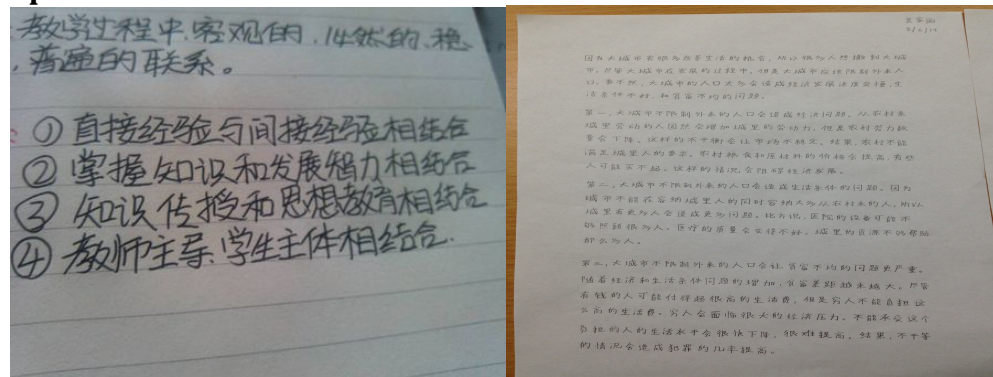 教学过程中.客观的.必然的.稳
普遍的联系。
①直接经验与间接经验相结合
②掌握知识和发展智力相结合
③知识传授和思想教育相结合
④教师主导.学生主体相结合.
因为大城市有很多改善生活的机会，所以很多人想搬到大城
市。尽管大城市在发展的过程中，但是大城市应该限制外来人
口。要不然，大城市的人口太多会造成经济发展速度变慢，生
活条件不好，和贫富不均的问题。
第一，大城市不限制外来的人口会造成经济问题。从农村来
城里劳动的人固然会增加城里的劳动力，但是农村劳力数
量会下降。这样的不平衡会让市场不稳定。结果，农村不能
满足城里人的要求。农村粮食和原材料的价格会提高，有些
人可能买不起。这样的情况会阻碍经济发展。
第二，大城市不限制外来的人口会造成生活条件的问题。因为
城市不能在容纳城里人的同时容纳太多从农村来的人，所以
城里有更多人会造成更多问题。比方说，医院的设备可能不
能照顾很多人，医疗的质量会变得不好。城里的资源不够帮助
那么多人。
第三，大城市不限制外来的人口会让贫富不均的问题更严重。
随着经济和生活条件问题的增加，贫富差距越来越大。尽管
有钱的人可能付得起很高的生活费，但是穷人不能负担这
么高的生活费。穷人会面临很大的经济压力。不能承受这个
负担的人的生活水平会很快下降，很难提高。结果，不平等
的情况会造成犯罪的几率提高。